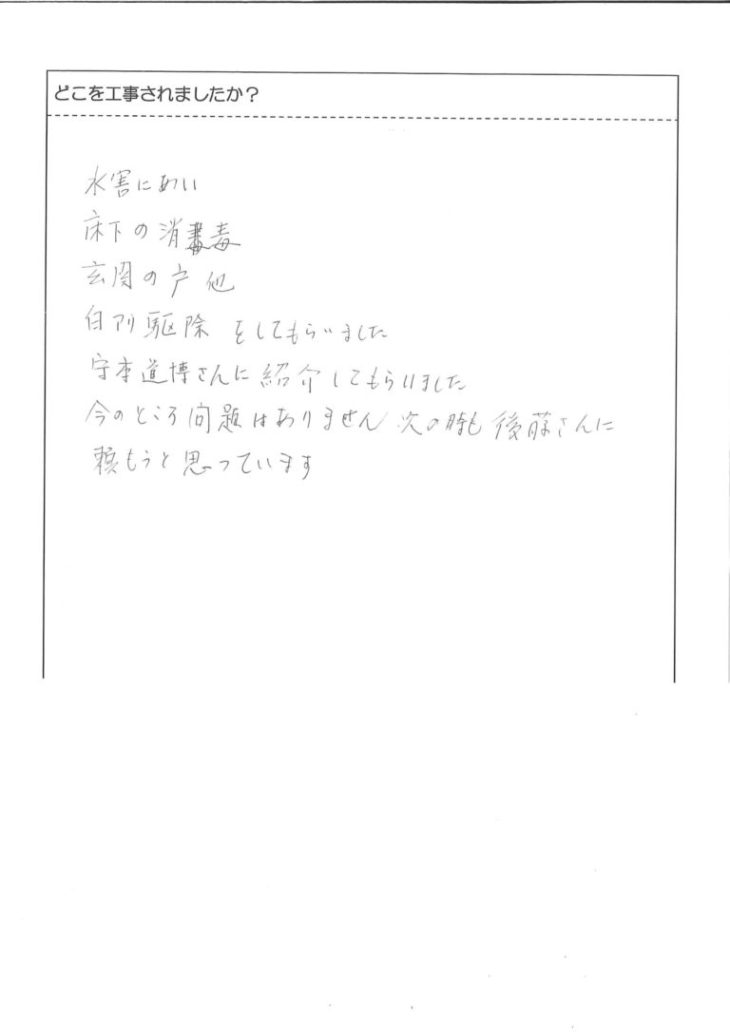 どこを工事されましたか？
水害にあい
床下の消毒
玄関の戸 他
白アリ駆除 をしてもらいました
守本道博さんに紹介してもらいました
今のところ問題はありません 次の時も後藤さんに
頼もうと思っています